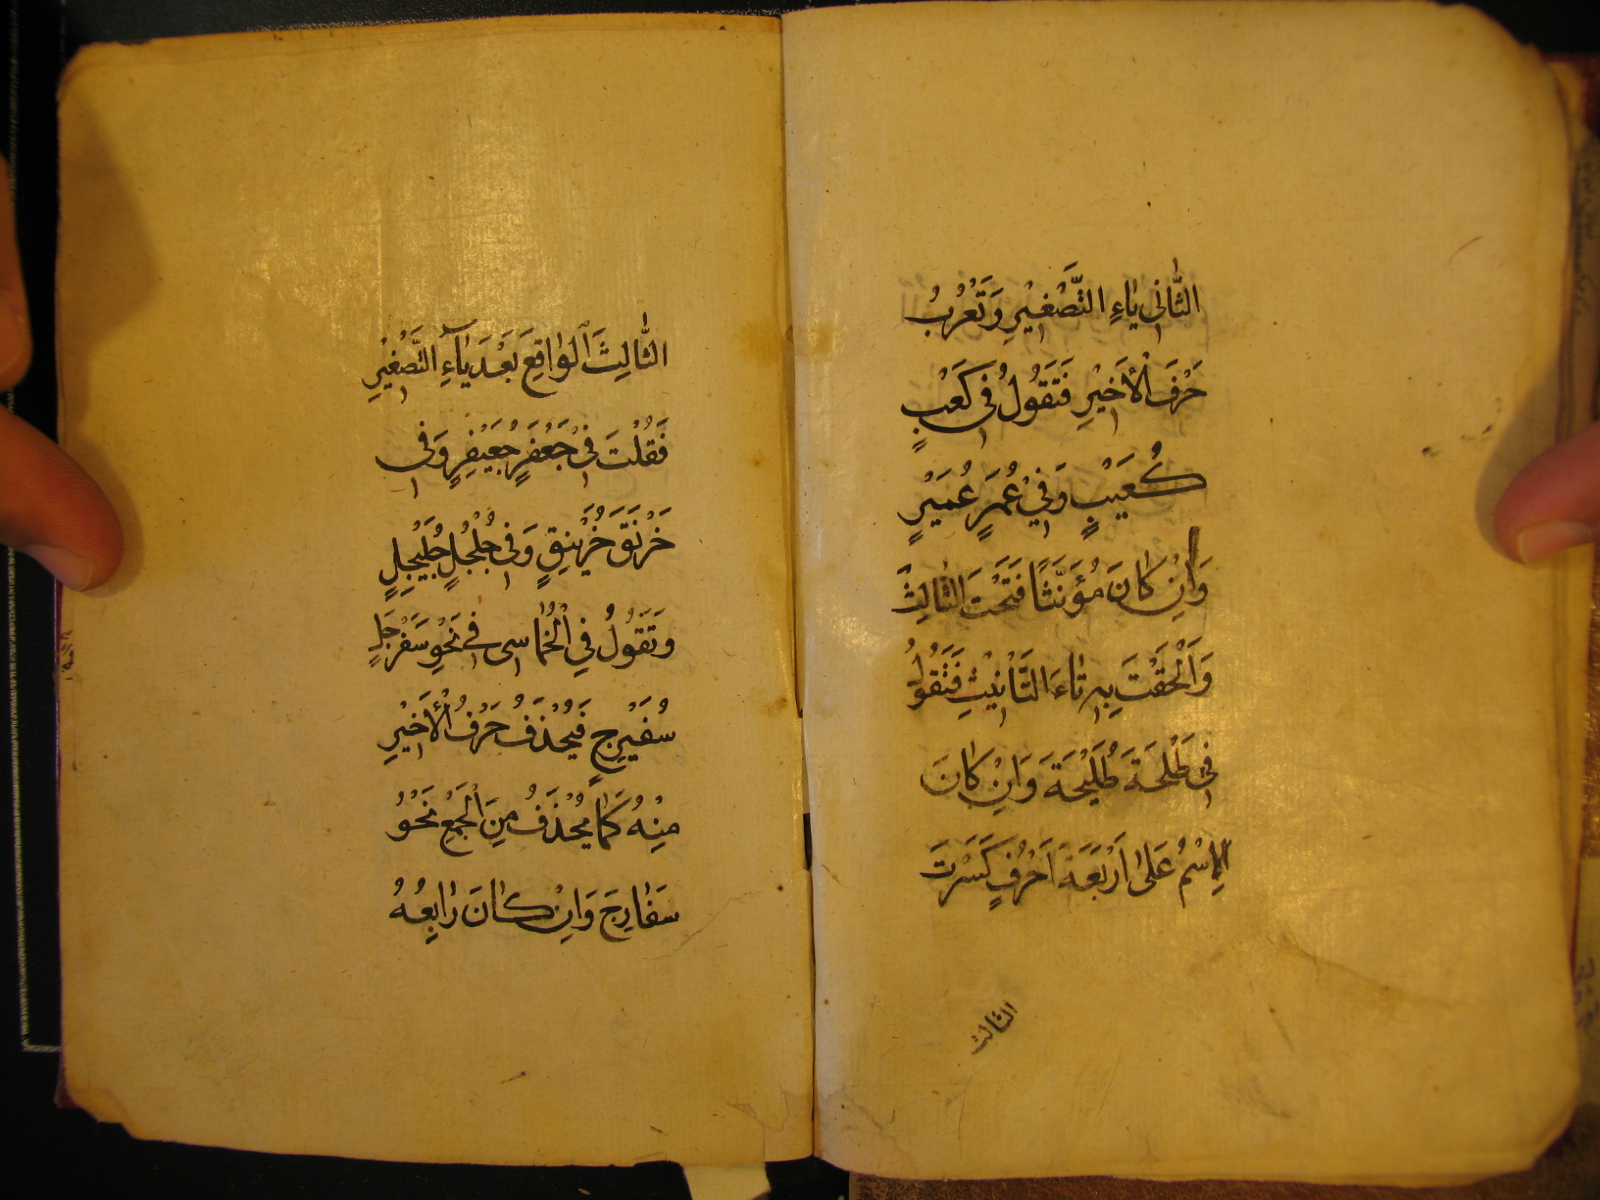 الثَّانِى يَاءِ التَّصْغِيْرِ وَتَعْرُبُ
حَرْفَ الْأَخِيْرِ فَتَقُولُ فِى كَعْبٍ
كُعَيْبٍ وَفِيْ عُمَرٍ عُمَيْرٍ
وَاِنْ كَانَ مُؤَنَّثًا فَتَحْتَ الثَّالِثَ
وَاَلْحَقْتَ بِهِ تَاءَ التَّأنِيْثِ فَتَقُوْلُ
فِىْ طَلْحَةَ طُلَيْحَةَ وَاِنْ كَانَ
الاِسْمُ عَلٰى اَرْبَعَةَ اَحْرُفٍ كَسَرْتَ
الثالث
الثَّالِثَ الْوَاقِعَ بَعْدَ يَآءِ التَّصْغِيْرِ
فَقُلْتَ فِىْ جَعْفَرٍ جُعَيْفِرٍ وَفِى
خَرْنَقَ خُرَيْنِقٍ وَفِى جُلْجُلٍ جُلَيْجِلٍ
وَتَقُولُ فِي الْخُمَاسِى فِے نَحْوِ سَفَرْجَلٍ
سُفَيْرِجٍ فَيُحْذَفُ حَرْفُ الْأَخِيْرِ
مِنْهُ كَمَا يُحْذَفُ مِنَ الْجَمْعِ نَحْوُ
سَفَارِجَ وَاِنْ كَانَ رَابِعُهُ